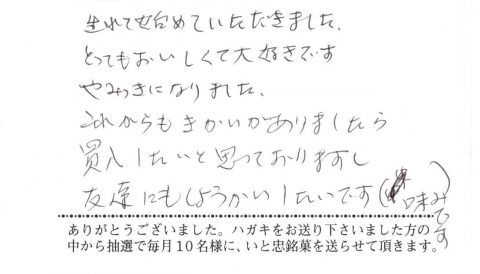 生れて始めていただきました、
とってもおいしくて大好きです
やみつきになりました、
これからもきかいがありましたら
買入したいと思っておりますし
友達にもしょうかいしたいです(味みです)
ありがとうございました。ハガキをお送り下さいました方の
中から抽選で毎月10名様に、いと忠銘菓を送らせて頂きます。